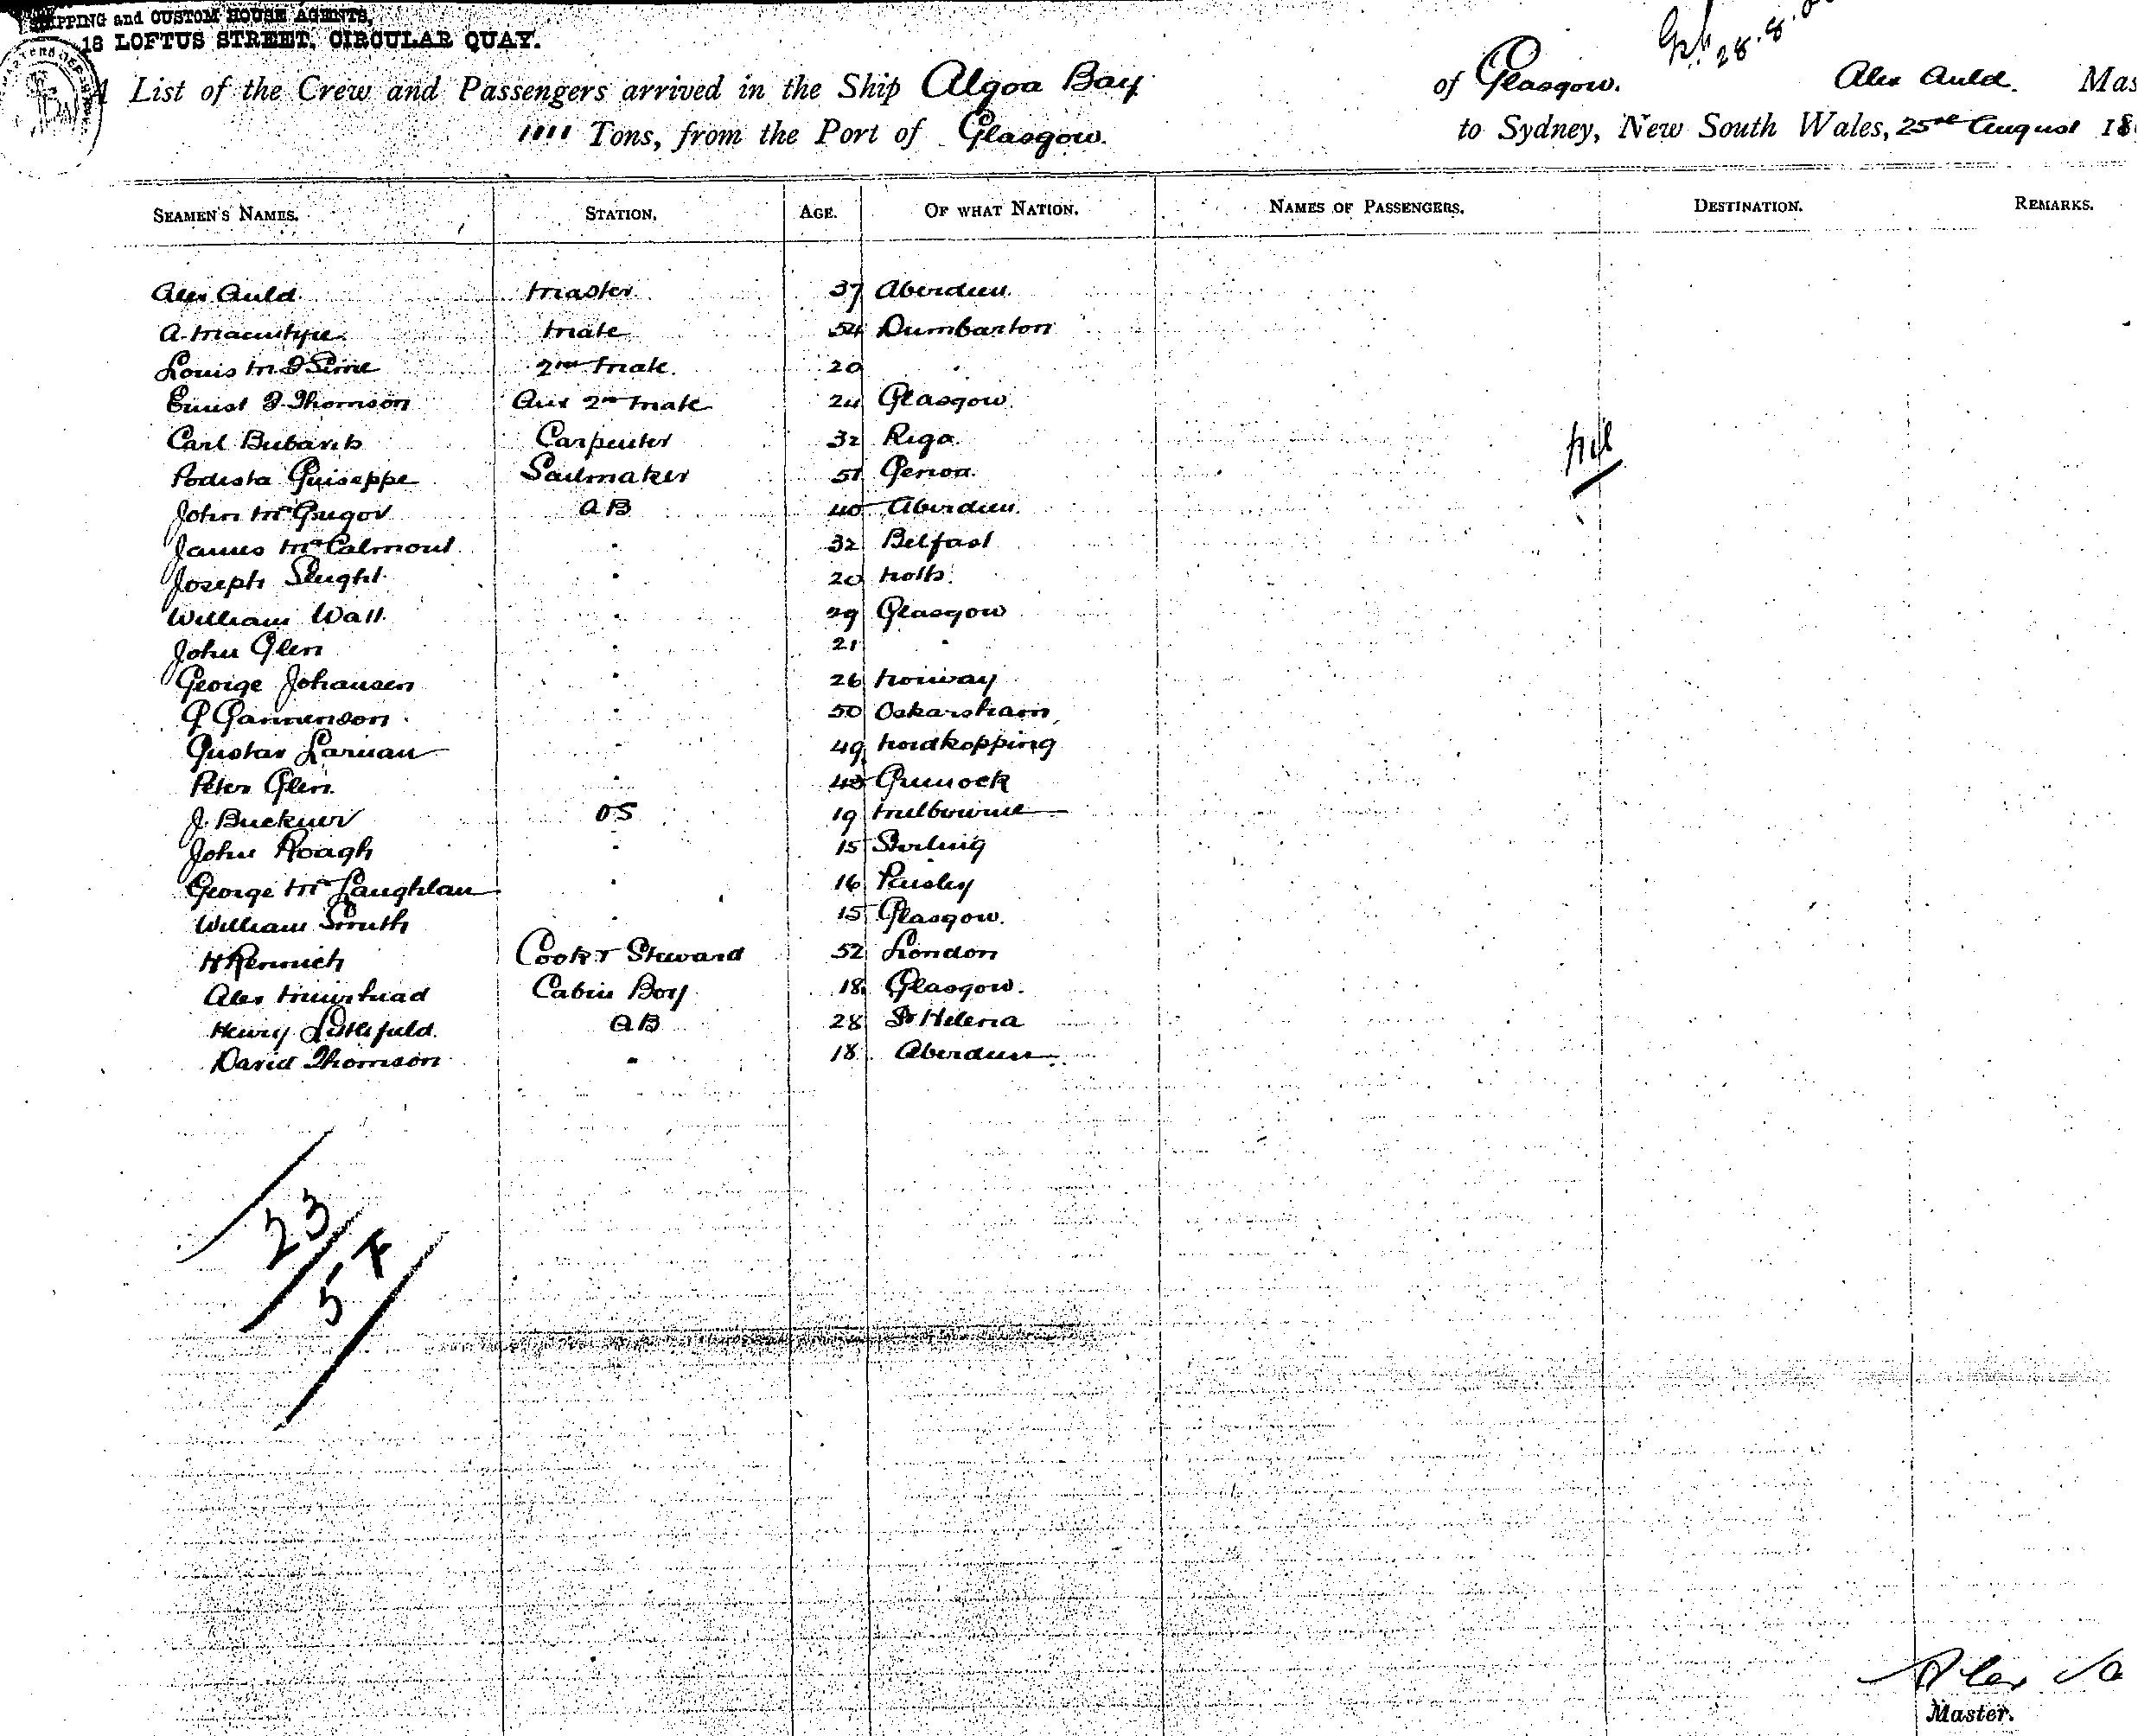 SHIPPING and CUSTOM HOUSE AGENTS,
18 LOFTUS STREET, CIRCULAR QUAY.
28.8.
A List of the Crew and Passengers arrived in the Ship Algoa Bay of Glasgow. Alex Auld. Mas
1111 Tons, from the Port of Glasgow. to Sydney, New South Wales, 25th August 18
SEAMEN'S NAMES. STATION. AGE. OF WHAT NATION. NAMES OF PASSENGERS. DESTINATION. REMARKS.
Alex Auld Master 37 Aberdeen
A. Macintyre Mate 54 Dumbarton
Louis M. D Sime 2nd Mate. 20 "
Ernest D. Thomson Aux 2nd Mate 24 Glasgow
Carl Bubank Carpenter 32 Riga
Podesta Guiseppe Sailmaker 51 Genoa
John McGregor AB 40 Aberdeen
James McCalmont " 32 Belfast
Joseph Slught " 20 Notts
William Wall " 29 Glasgow
John Glen " 21 "
George Johansen " 26 Norway
Nil
" 50 Oskarsham
Gustav Larman " 49 Nordkopping
Peter Glen " 43 Greenock
J. Buckner OS 19 Melbourne
John Roagh " 15 Stirling
George McLaughlan " 16 Paisley
William Smith " 15 Glasgow.
H Rennich Cook & Steward 52 London
Alex Muirhead Cabin Boy 18 Glasgow.
Henry Littlefield AB 28 St Helena
David Thomson " 18 Aberdeen
23
Alex
Master.